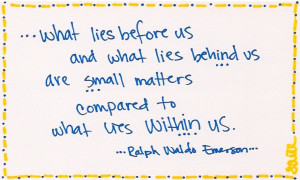 ...what lies before us
and what lies behind us
are small matters
compared to
what lies within us.
...Ralph Waldo Emerson...